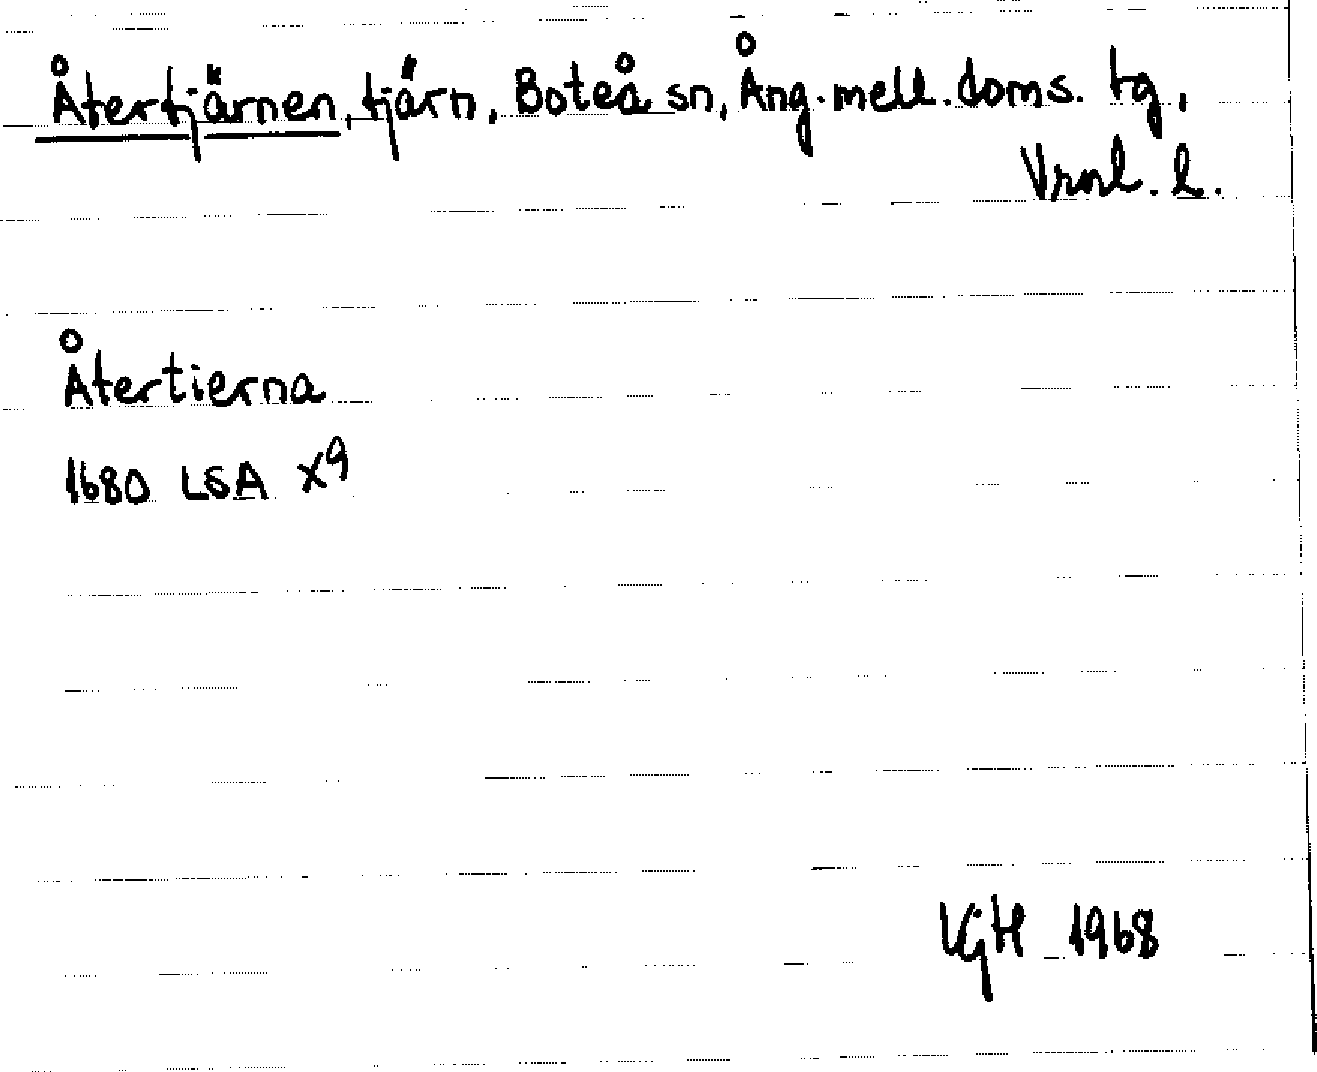 Återtjärnen, tjärn, Boteå sn, Ång. mell. doms. tg,
Vrnl. l.
Återtierna
1680 LSA X9
VGH 1968